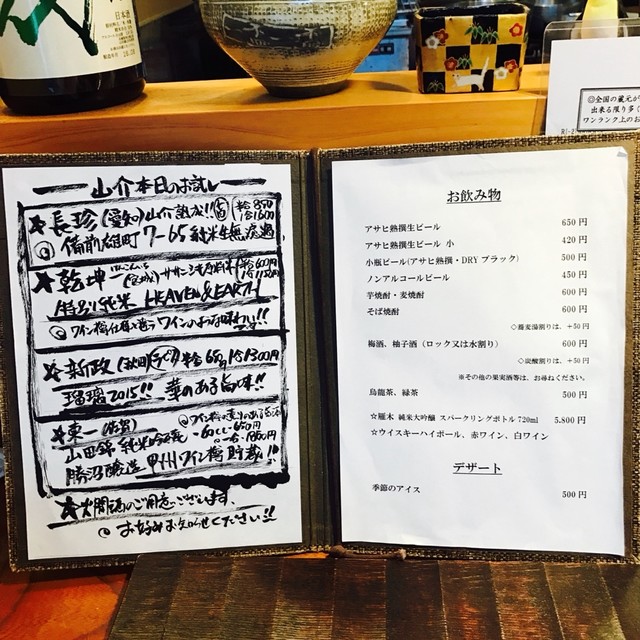 日本酒
◎全国の蔵元が
出来る限り多く
ワンランク上のお
山介本日のお試し
★長珍(愛知)山介熟成!! 半合850 1合1600
備前雄町 7-65 純米生無濾過
★乾坤一(宮城)ササニシキ 半合600円 1合1150円
特別純米 HEAVEN & EARTH
ワイン樽仕様と違うワインのお酒な味わい!!
★新政(秋田) 半合650 1合1300円
瑠璃2015!! 華のある旨味!!
★東一(佐賀)
山田錦 純米吟醸 60cc 650円
勝沼醸造 甲州ワイン樽貯蔵!!
★大間碼のご用意ございます、
お好みお知らせください!!
お飲み物
アサヒ熟撰生ビール 650円
アサヒ熟撰生ビール 小 420円
小瓶ビール(アサヒ熟撰・DRY ブラック) 500円
ノンアルコールビール 450円
芋焼酎・麦焼酎 600円
そば焼酎 600円
◇蕎麦湯割りは、+50円
梅酒、柚子酒(ロック又は水割り) 600円
◇炭酸割りは、+50円
※その他の果実酒等は、お尋ねください。
烏龍茶、緑茶 500円
☆雁木 純米大吟醸 スパークリングボトル720ml 5.800円
☆ウイスキーハイボール、赤ワイン、白ワイン
デザート
季節のアイス 500円